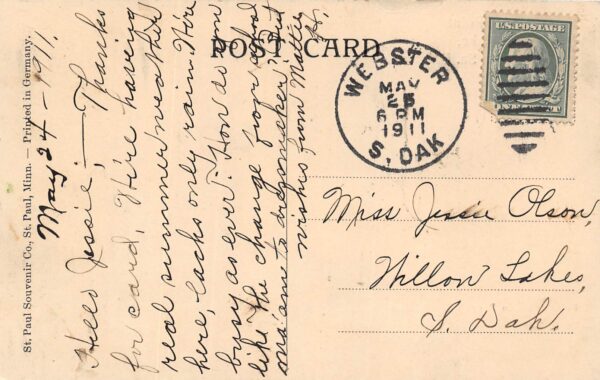 POST CARD
U.S. POSTAGE
WEBSTER
MAY
25
6 PM
1911
S. DAK
St. Paul Souvenir Co., St. Paul, Minn. — Printed in Germany.
May 24 - 1911.
Hello Jessie: — Thanks
for card. We're having
real summer weather
here, lacks only rain. We're
busy as ever. How do you
like the change from school
ma'am to dressmaker? Best
wishes from Mattie
H.
Miss Jessie Olson,
Willow Lakes,
S. Dak.